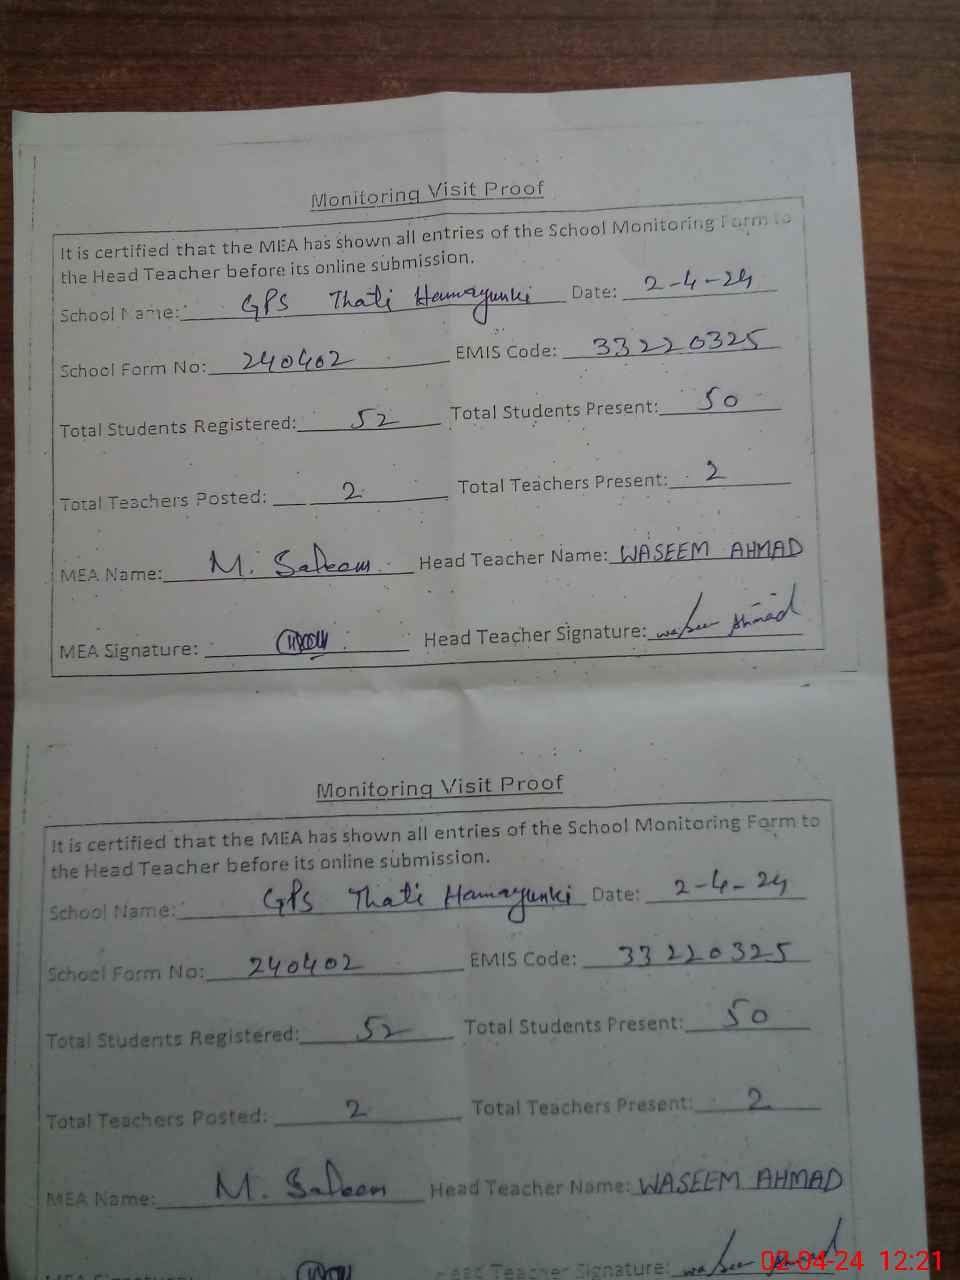 Monitoring Visit Proof
It is certified that the MEA has shown all entries of the School Monitoring Form to
the Head Teacher before its online submission.
School Name: GPS Thati Hamayunki Date: 2-4-24
School Form No: 240402 EMIS Code: 33220325
Total Students Registered: 52 Total Students Present: 50
Total Teachers Posted: 2 Total Teachers Present: 2
MEA Name: M. Saleem Head Teacher Name: WASEEM AHMAD
MEA Signature: Head Teacher Signature: Waseem Ahmad
Monitoring Visit Proof
It is certified that the MEA has shown all entries of the School Monitoring Form to
the Head Teacher before its online submission.
School Name: GPS Thati Hamayunki Date: 2-4-24
School Form No: 240402 EMIS Code: 33220325
Total Students Registered: 52 Total Students Present: 50
Total Teachers Posted: 2 Total Teachers Present: 2
MEA Name: M. Saleem Head Teacher Name: WASEEM AHMAD
MEA Signature: Head Teacher Signature:
02-04-24 12:21